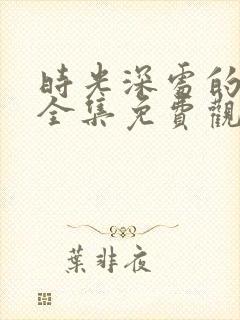 時光深雷的
全集免費觀
葉非夜